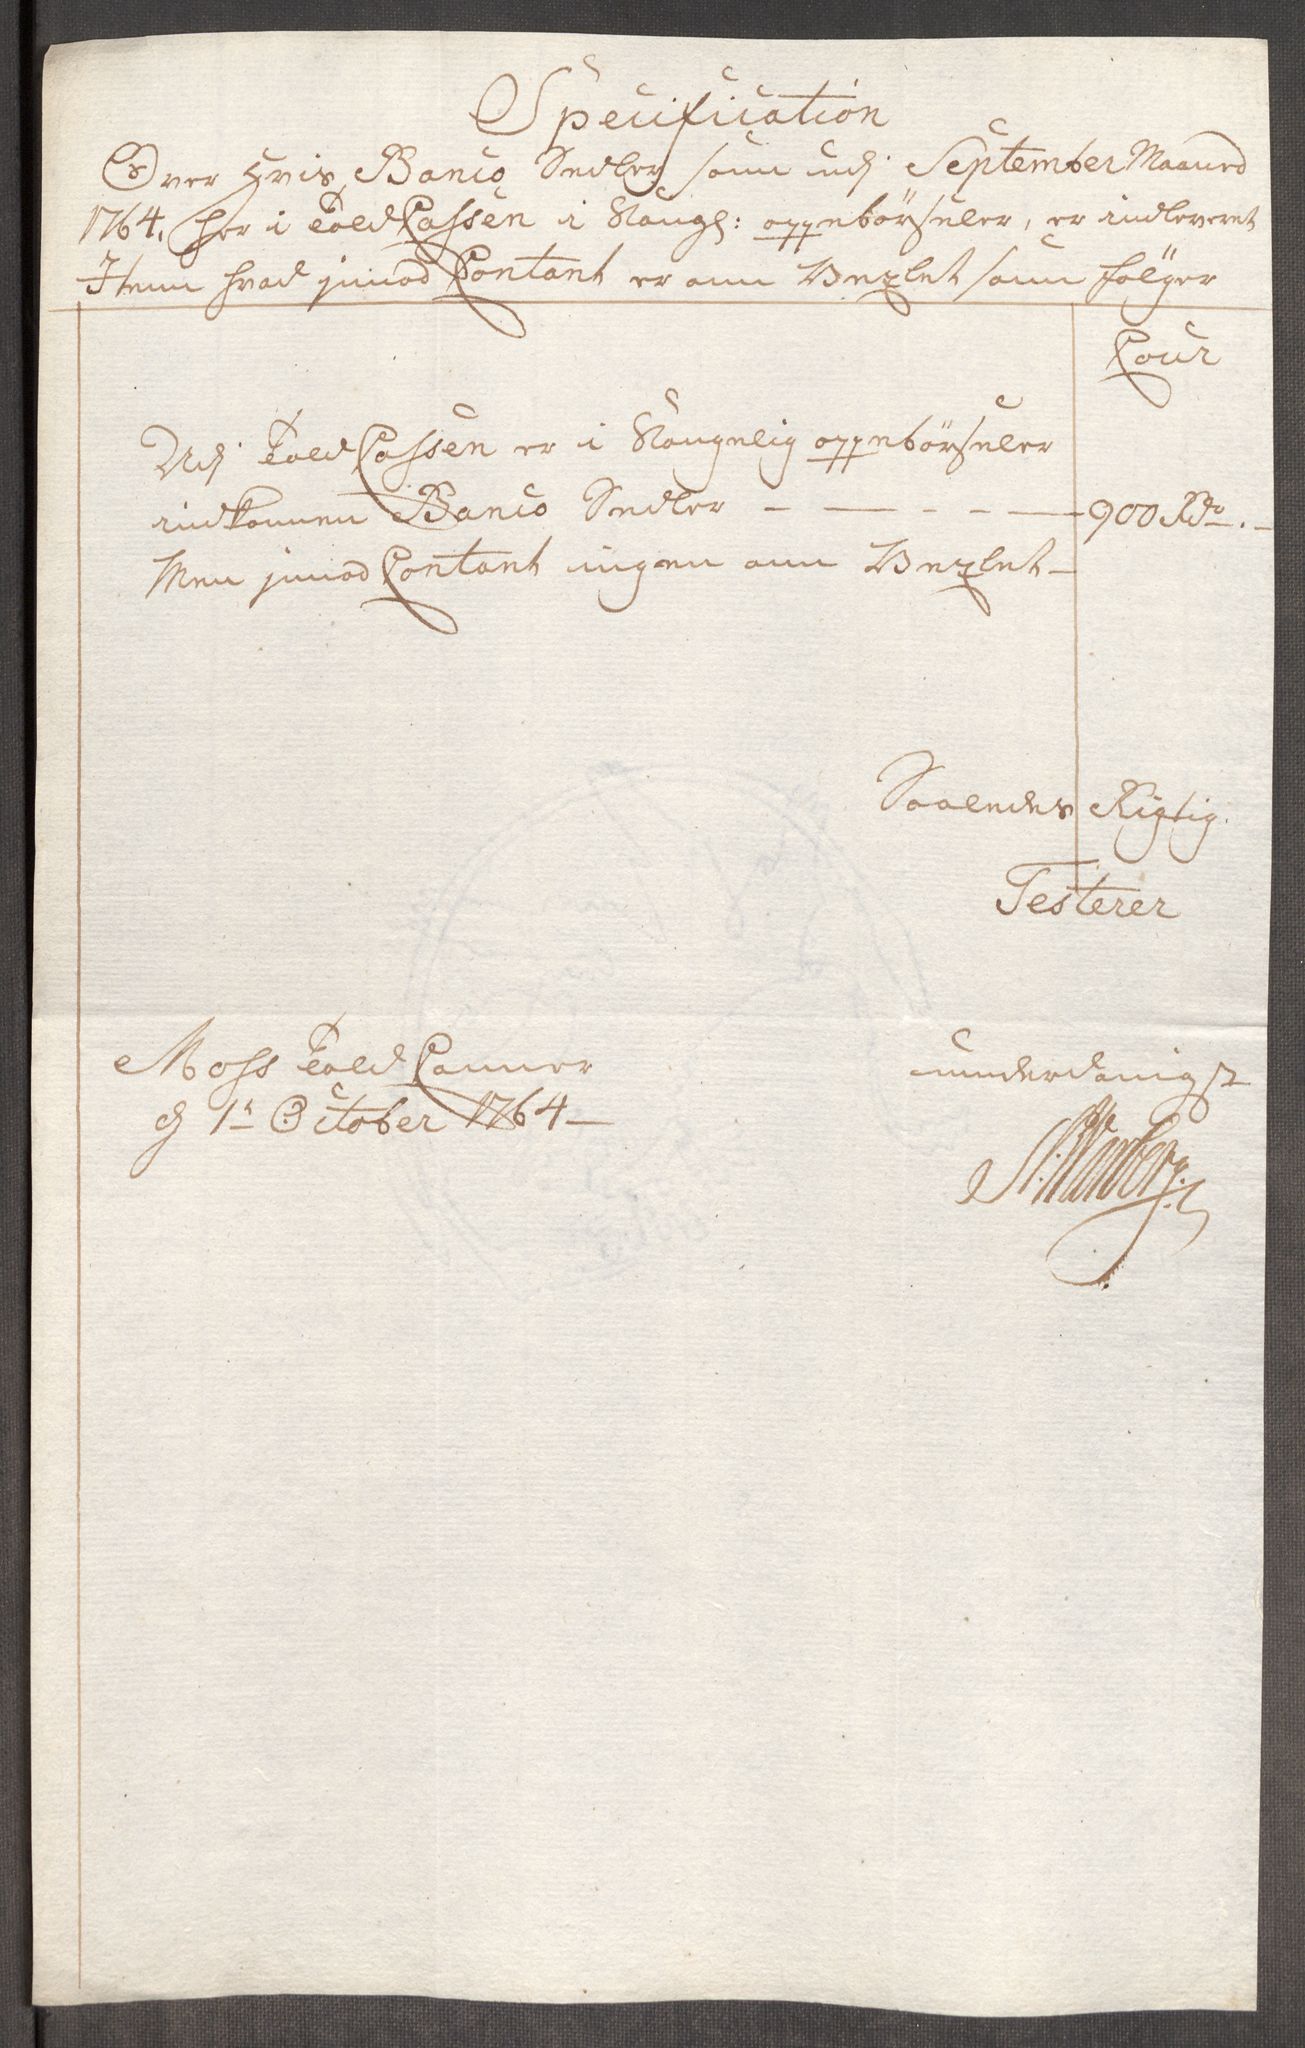 Specification
Over hvis Banco Sedler som udj September Maaned
1764. her i Told Cassen i Kongl: oppebörseler, er indleveret
Item hvad jmod Contant er om Vexlet som fölger
Cour
Udj Told Cassen er i Kongelig oppebörseler
indkommen Banco Sedler - — - - — 900 Rdr. -
Men jmod Contant ingen om Vexlet -
Saaledes Rigtig
Testerer
Moss Told Cammer
d 1t October 1764 -
underdanigst
N. Warberg.